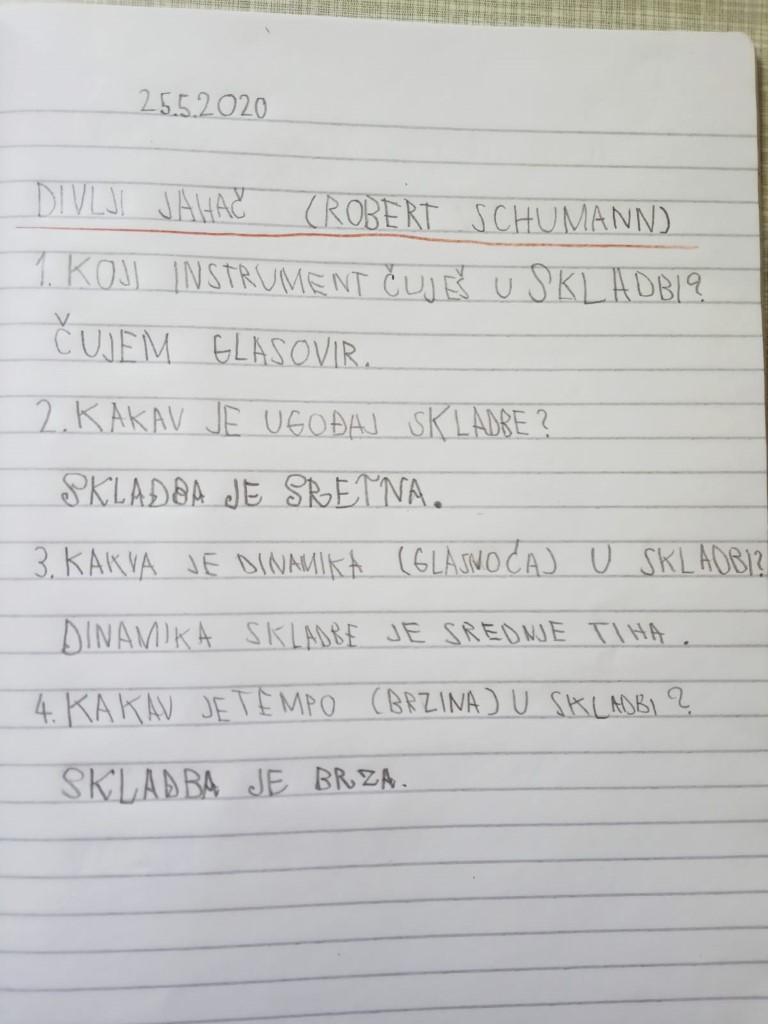 25.5.2020
DIVLJI JAHAČ (ROBERT SCHUMANN)
1. KOJI INSTRUMENT ČUJEŠ U SKLADBI?
ČUJEM GLASOVIR.
2. KAKAV JE UGOĐAJ SKLADBE?
SKLADBA JE SRETNA.
3. KAKVA JE DINAMIKA (GLASNOĆA) U SKLADBI?
DINAMIKA SKLADBE JE SREDNJE TIHA.
4. KAKAV JE TEMPO (BRZINA) U SKLADBI?
SKLADBA JE BRZA.